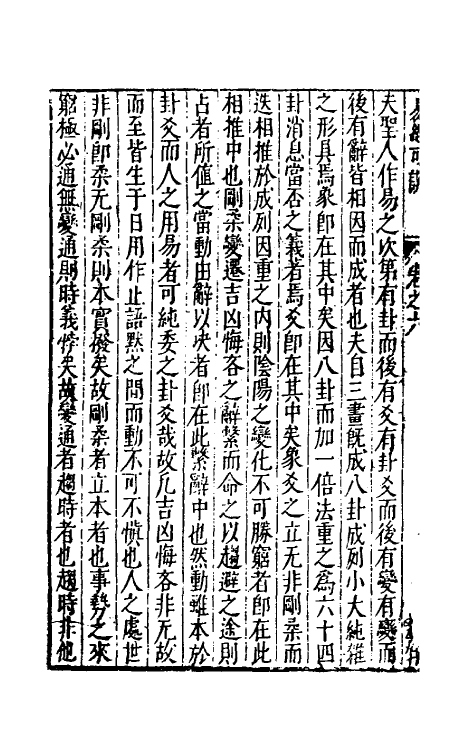 夫聖人作易之次第有卦而後有爻有卦爻而後有變有變而
後有辭皆相因而成者也夫自三畫既成八卦成列小大純雜
之形具焉象即在其中矣因八卦而加一倍法重之為六十四
卦消息當否之義者焉爻即在其中矣象爻之立无非剛柔而
迭相推於成列因重之内則陰陽之變化不可勝窮者即在此
相推中也剛柔變遷吉凶悔吝之辭繫而命之以趨避之途則
占者所值之當動由辭以决者即在此繫辭中也然動雖本於
卦爻而人之用易者可純委之卦爻哉故凡吉凶悔吝非无故
而至皆生于日用作止語默之間而動不可不慎也人之處世
非剛即柔无剛柔則本實撥矣故剛柔者立本者也事勢之來
窮極必通無變通則時義悖矣故變通者趨時者也趨時非他